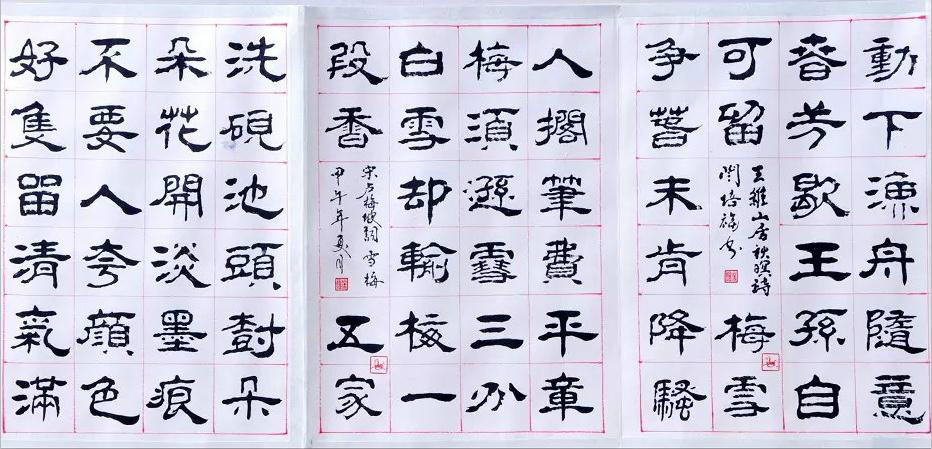 動下漁舟隨意
春芳歇王孫自
可留
王維山居秋暝詩
梅雪
爭萅未肯降騷
人擱筆費平章
梅須遜雪三分
白雪却輸梅一
段香
宋卢梅坡詞 雪梅
甲午年夏月
五家
洗硯池頭尌朵
朵花開淡墨痕
不要人夸顏色
好隻留清氣滿